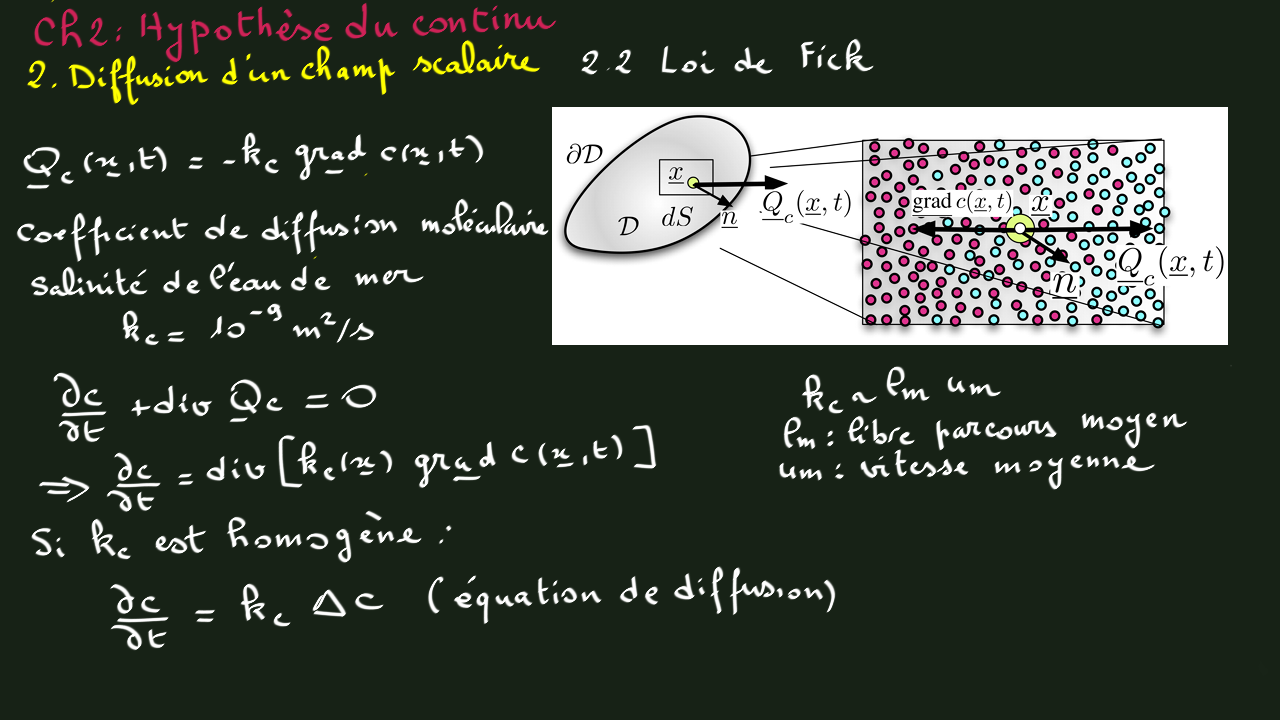 Ch2: Hypothèse du continu
2. Diffusion d'un champ scalaire 2.2 Loi de Fick
Q_c(x,t) = -k_c grad c(x,t)
coefficient de diffusion moléculaire
salinité de l'eau de mer
k_c = 10^-9 m²/s
∂c/∂t + div Q_c = 0
⇒ ∂c/∂t = div [k_c(x) grad c(x,t)]
Si k_c est homogène :
∂c/∂t = k_c Δc (équation de diffusion)
∂D
x
D
dS
n
Q_c(x,t)
grad c(x,t)
x
n
Q_c(x,t)
k_c ~ lm um
lm : libre parcours moyen
um : vitesse moyenne